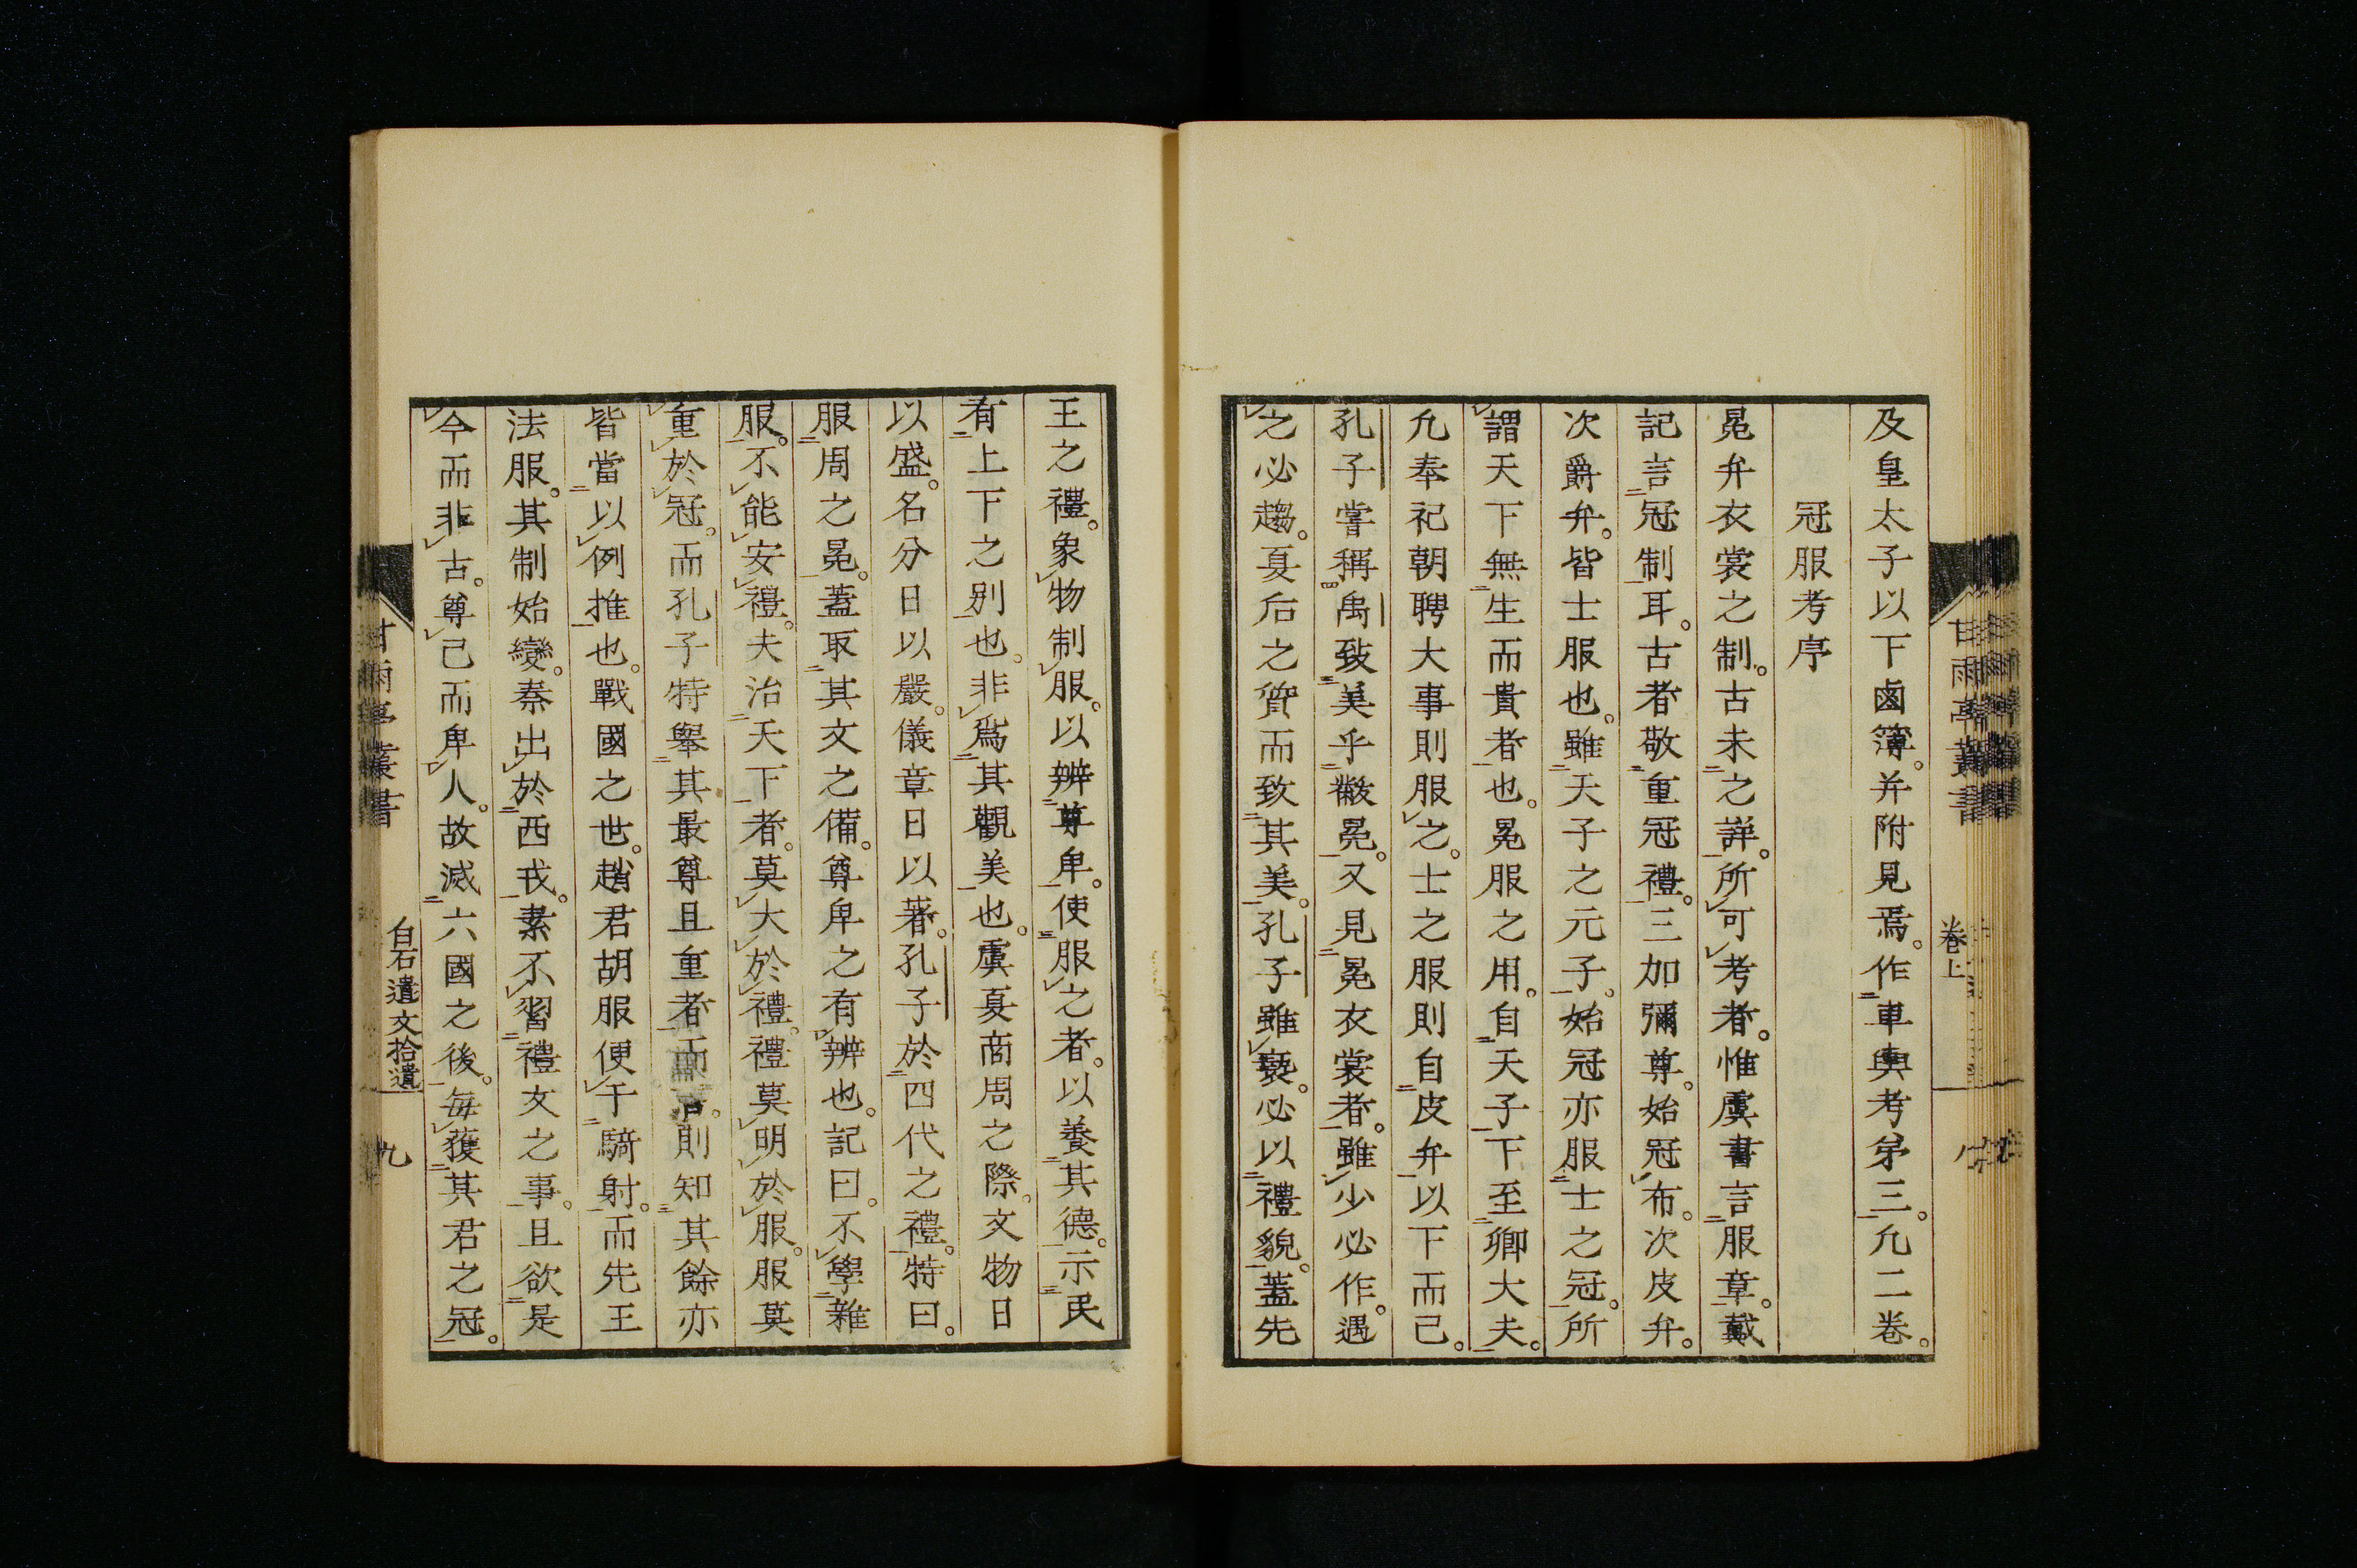 及皇太子以下鹵簿。并附見焉。作車輿考弟三。凢二卷。
冠服考序
冕弁衣裳之制。古未之詳。所可考者。惟虞書言服章。戴
記言冠制耳。古者敬重冠禮。三加彌尊。始冠布。次皮弁。
次爵弁。皆士服也。雖天子之元子。始冠亦服士之冠。所
謂天下無生而貴者也。冕服之用。自天子下至卿大夫。
凢奉祀朝聘大事則服之。士之服則自皮弁以下而已。
孔子嘗稱禹致美乎黻冕。又見冕衣裳者。雖少必作。過
之必趨。夏后之質而致其美。孔子雖褻。必以禮貌。蓋先
甘雨亭叢書
卷上
八
王之禮。象物制服。以辨尊卑。使服之者。以養其德。示民
有上下之別也。非爲其觀美也。虞夏商周之際。文物日
以盛。名分日以嚴。儀章日以著。孔子於四代之禮。特曰。
服周之冕。蓋取其文之備。尊卑之有辨也。記曰。不學雜
服。不能安禮。夫治天下者。莫大於禮。禮莫明於服。服莫
重於冠。而孔子特舉其最尊且重者而言。則知其餘亦
皆當以例推也。戰國之世。趙君胡服便于騎射。而先王
法服。其制始變。秦出於西戎。素不習禮文之事。且欲是
今而非古。尊己而卑人。故滅六國之後。每獲其君之冠。
甘雨亭叢書
白石遺文拾遺
九